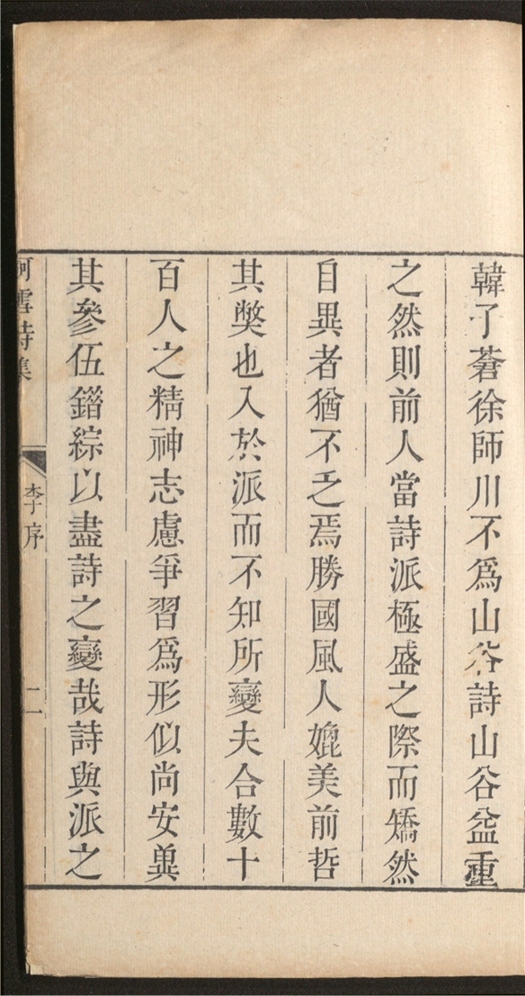 韓子蒼徐師川不爲山谷詩山谷益重
之然則前人當詩派極盛之際而矯然
自異者猶不乏焉勝國風人媲美前哲
其獘也入於派而不知所變夫合數十
百人之精神志慮爭習爲形似尚安兾
其參伍錯綜以盡詩之變哉詩與派之
雪詩集
李序
二